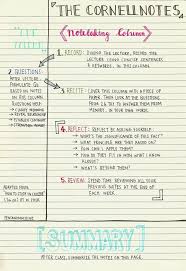 THE CORNELL NOTES
Notetaking Column
1. RECORD: DURING THE LECTURE, RECORD THE
LECTURE USING CONCISE SENTENCES
& KEYWORDS, IN THIS COLUMN.
2. QUESTIONS:
AFTER CLASS,
FORMULATE Qs
BASED ON NOTES
IN THIS COLUMN.
QUESTIONS HELP
CLARIFY MEANINGS,
REVEAL RELATIONSHIPS
ESTABLISH CONTINUITY
STRENGTHEN
MEMORY
3. RECITE: COVER THIS COLUMN WITH A PIECE OF
PAPER. THEN LOOK AT THE QUESTIONS
FROM TO ANSWER THEM FROM
MEMORY, IN YOUR OWN WORDS.
4. REFLECT: REFLECT BY ASKING YOURSELF:
WHAT'S THE SIGNIFICANCE OF THIS FACT?
WHAT PRINCIPLES ARE THEY BASED ON?
HOW CAN I APPLY THEM?
HOW DO THEY FIT IN FROM WHAT I KNOW
ALREADY?
WHAT'S BEYOND THEM?
5. REVIEW: SPEND TEN MINUTES REVIEWING ALL YOUR
PREVIOUS NOTES AT THE END OF
EACH WEEK.
ADAPTED FROM
'HOW TO STUDY IN COLLEGE'
[SUMMARY]
AFTER CLASS, SUMMARIZE THE NOTES ON THIS PAGE.